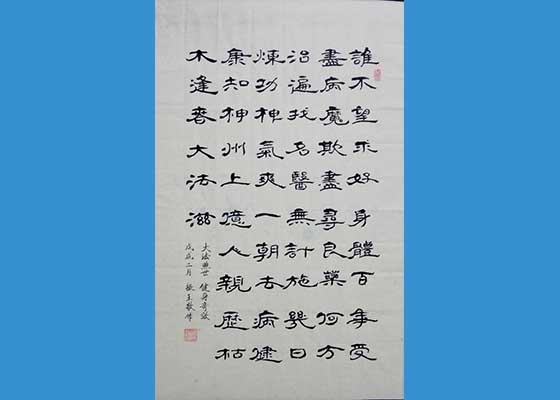 誰不望求好身體百事受
盡病魔欺盡尋良藥何方
治遍找名醫無計施幾日
煉功神氣爽一朝去病健
康知神州上億人親歷枯
木逢春大法滋
大法興世 健身奇效
戊戌二月